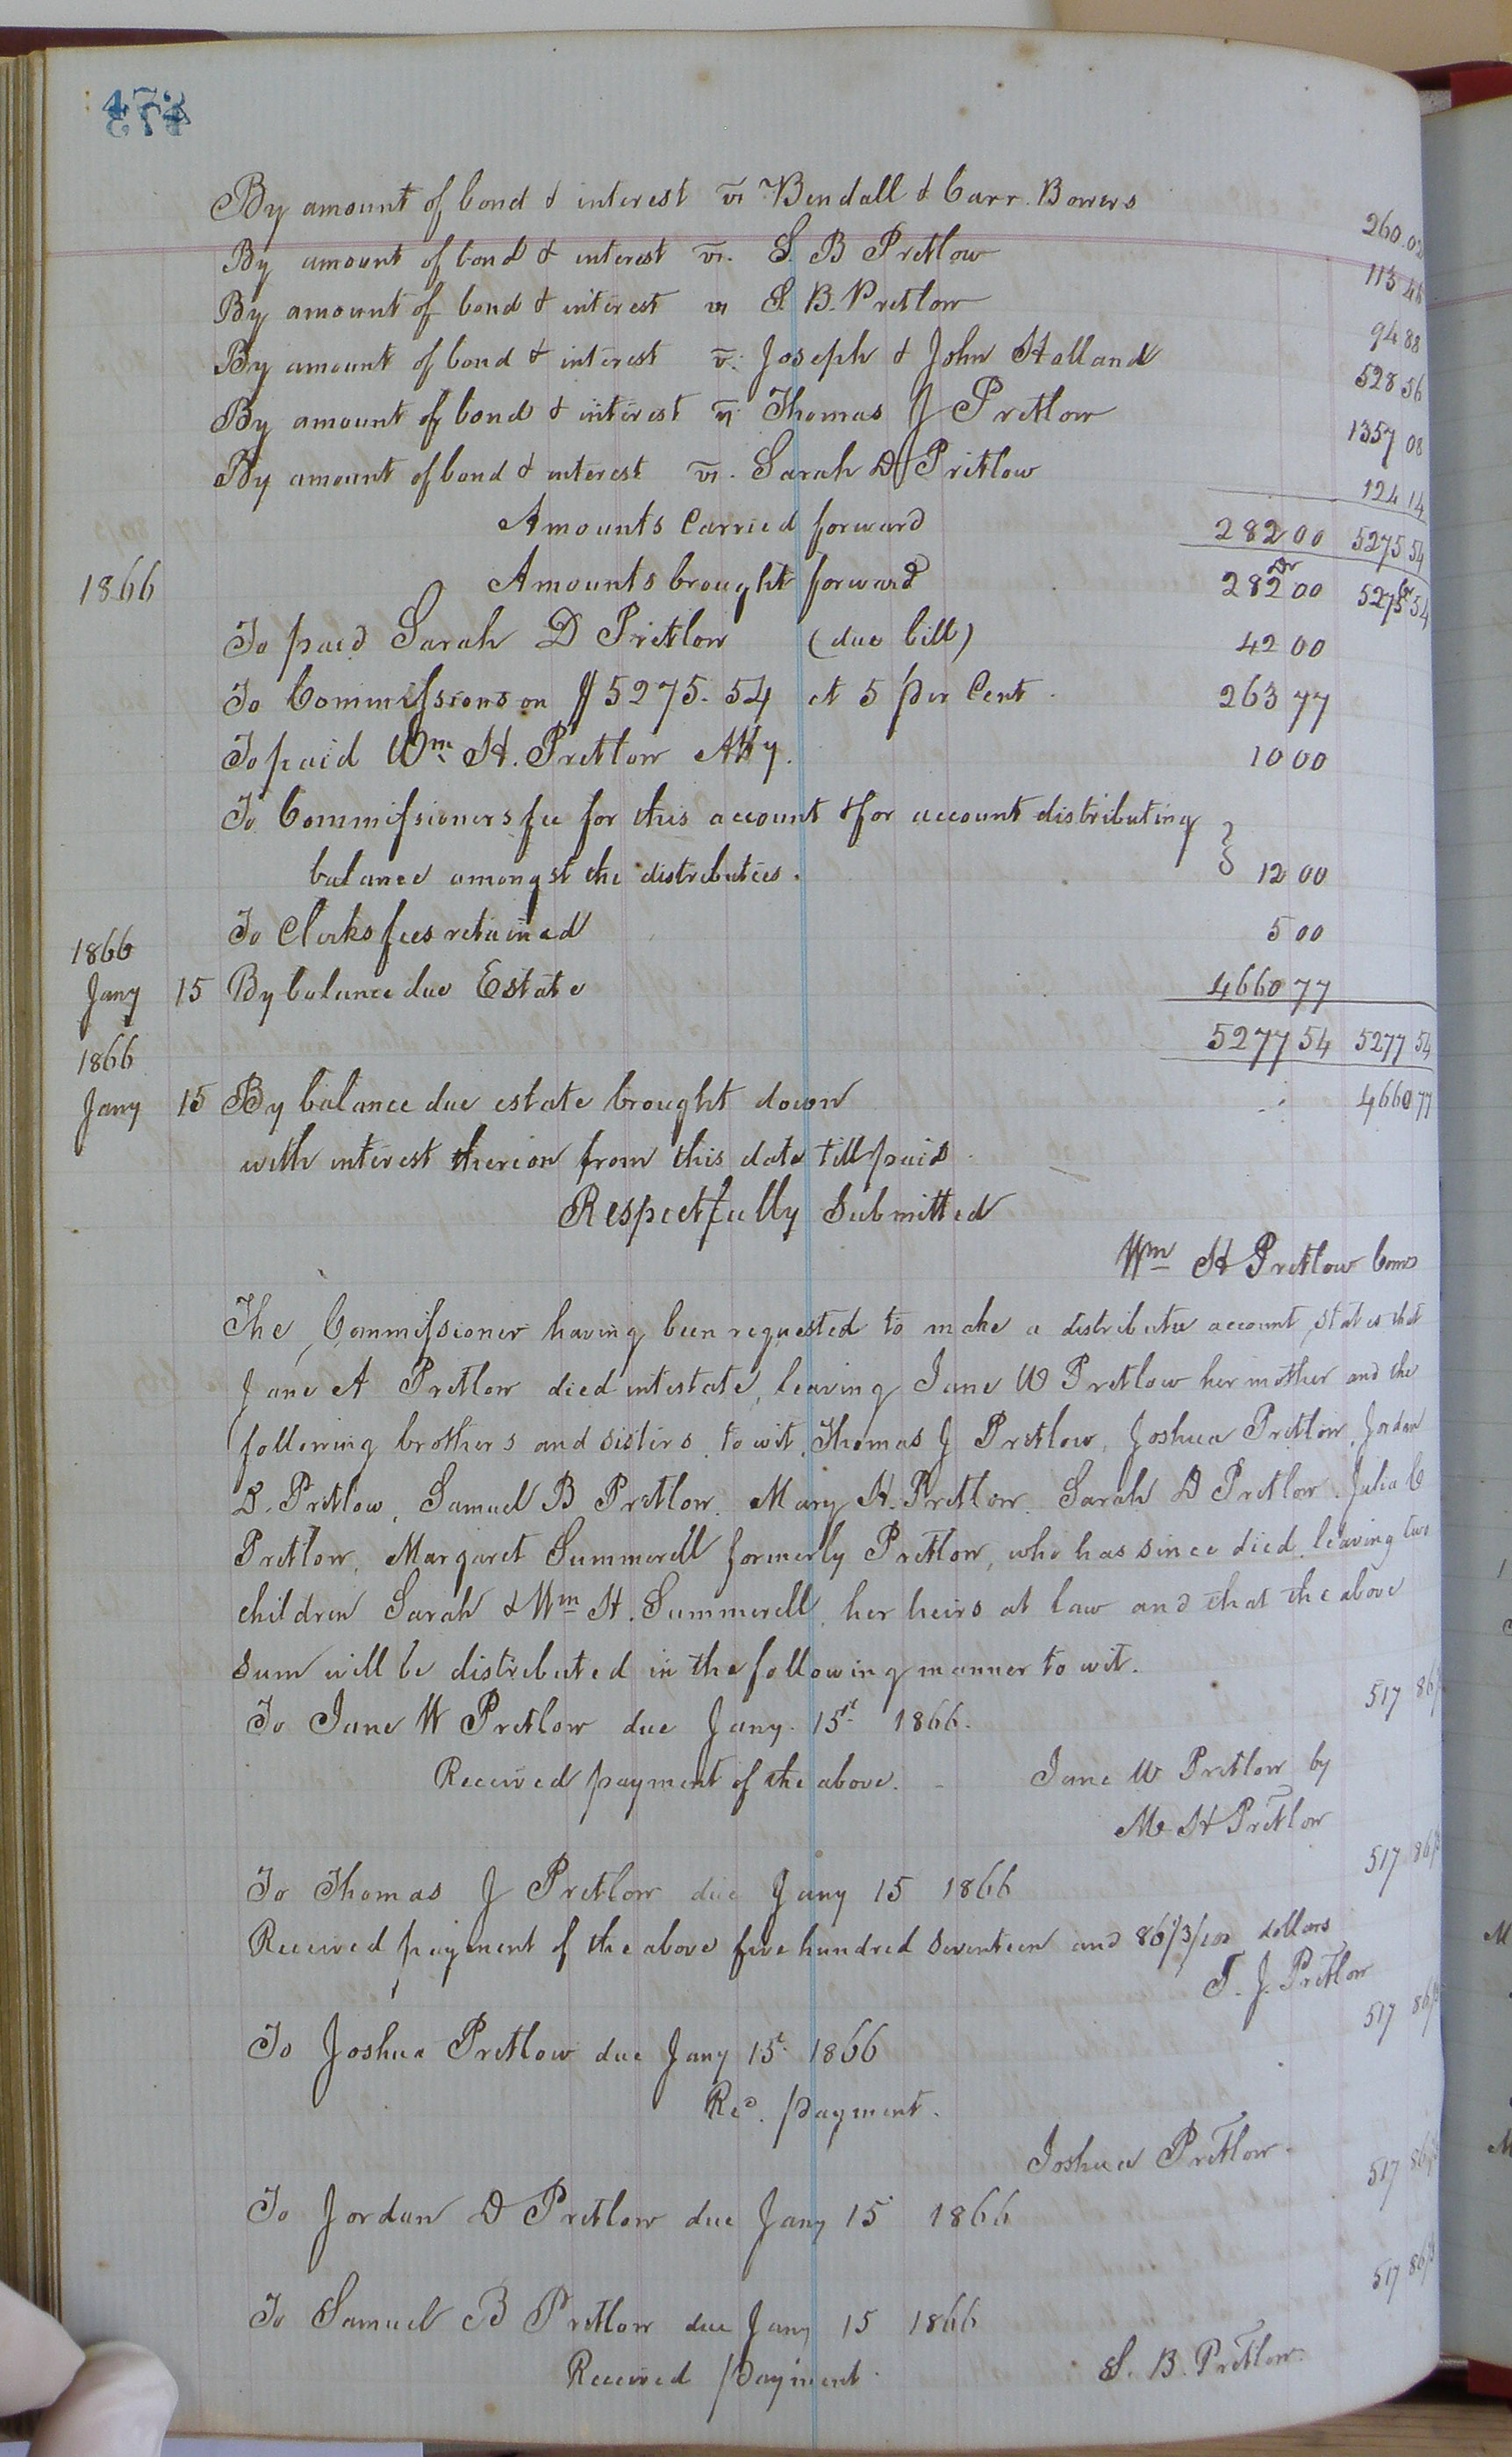 By amount of bond & interest vs Bendall & Carr Bowers 260.02
By amount of bond & interest vs. S. B Pretlow 113 48
By amount of bond & interest vs S. B. Pretlow 94 88
By amount of bond & interest vs. Joseph & John Holland 528 56
By amount of bond & interest vs Thomas J Pretlow 1357 08
By amount of bond & interest vs. Sarah D Pretlow 124 14
Amounts Carried forward 282 00 5275 54
1866 Amounts brought forward Dr 282 00 Cr 5275 54
To paid Sarah D Pretlow (due bill) 42 00
To Commissions on $5275.54 at 5 per Cent. 263 77
To paid Wm H. Pretlow Atty. 10 00
To Commissioners fee for this account & for account distributing
balance amongst the distributees. 12 00
To Clerks fees retained 5 00
1866
Jany 15 By balance due Estate 4660 77
5277 54 5277 54
1866
Jany 15 By balance due estate brought down 4660 77
with interest thereon from this date till paid
Respectfully Submitted
Wm H Pretlow Comr
The Commissioner having been requested to make a distributive account, states that
Jane A Pretlow died intestate, leaving Jane W Pretlow her mother and the
following brothers and sisters, to wit, Thomas J Pretlow, Joshua Pretlow, Jordan
D. Pretlow, Samuel B Pretlow, Mary H. Pretlow, Sarah D Pretlow, Julia C
Pretlow, Margaret Summerell formerly Pretlow, who has since died, leaving two
children Sarah & Wm H. Summerell, her heirs at law and that the above
sum will be distributed in the following manner to wit.
To Jane W Pretlow due Jany. 15t 1866. 517 86
Received payment of the above. Jane W Pretlow by
M H Pretlow
To Thomas J Pretlow due Jany 15 1866 517 86
Received payment of the above five hundred seventeen and 86 1/3/100 dollars
T. J. Pretlow
To Joshua Pretlow due Jany 15t 1866 517 86
Recd. payment.
Joshua Pretlow.
To Jordan D Pretlow due Jany 15 1866 517 86
To Samuel B Pretlow due Jany 15 1866 517 86
Received payment. S. B. Pretlow.